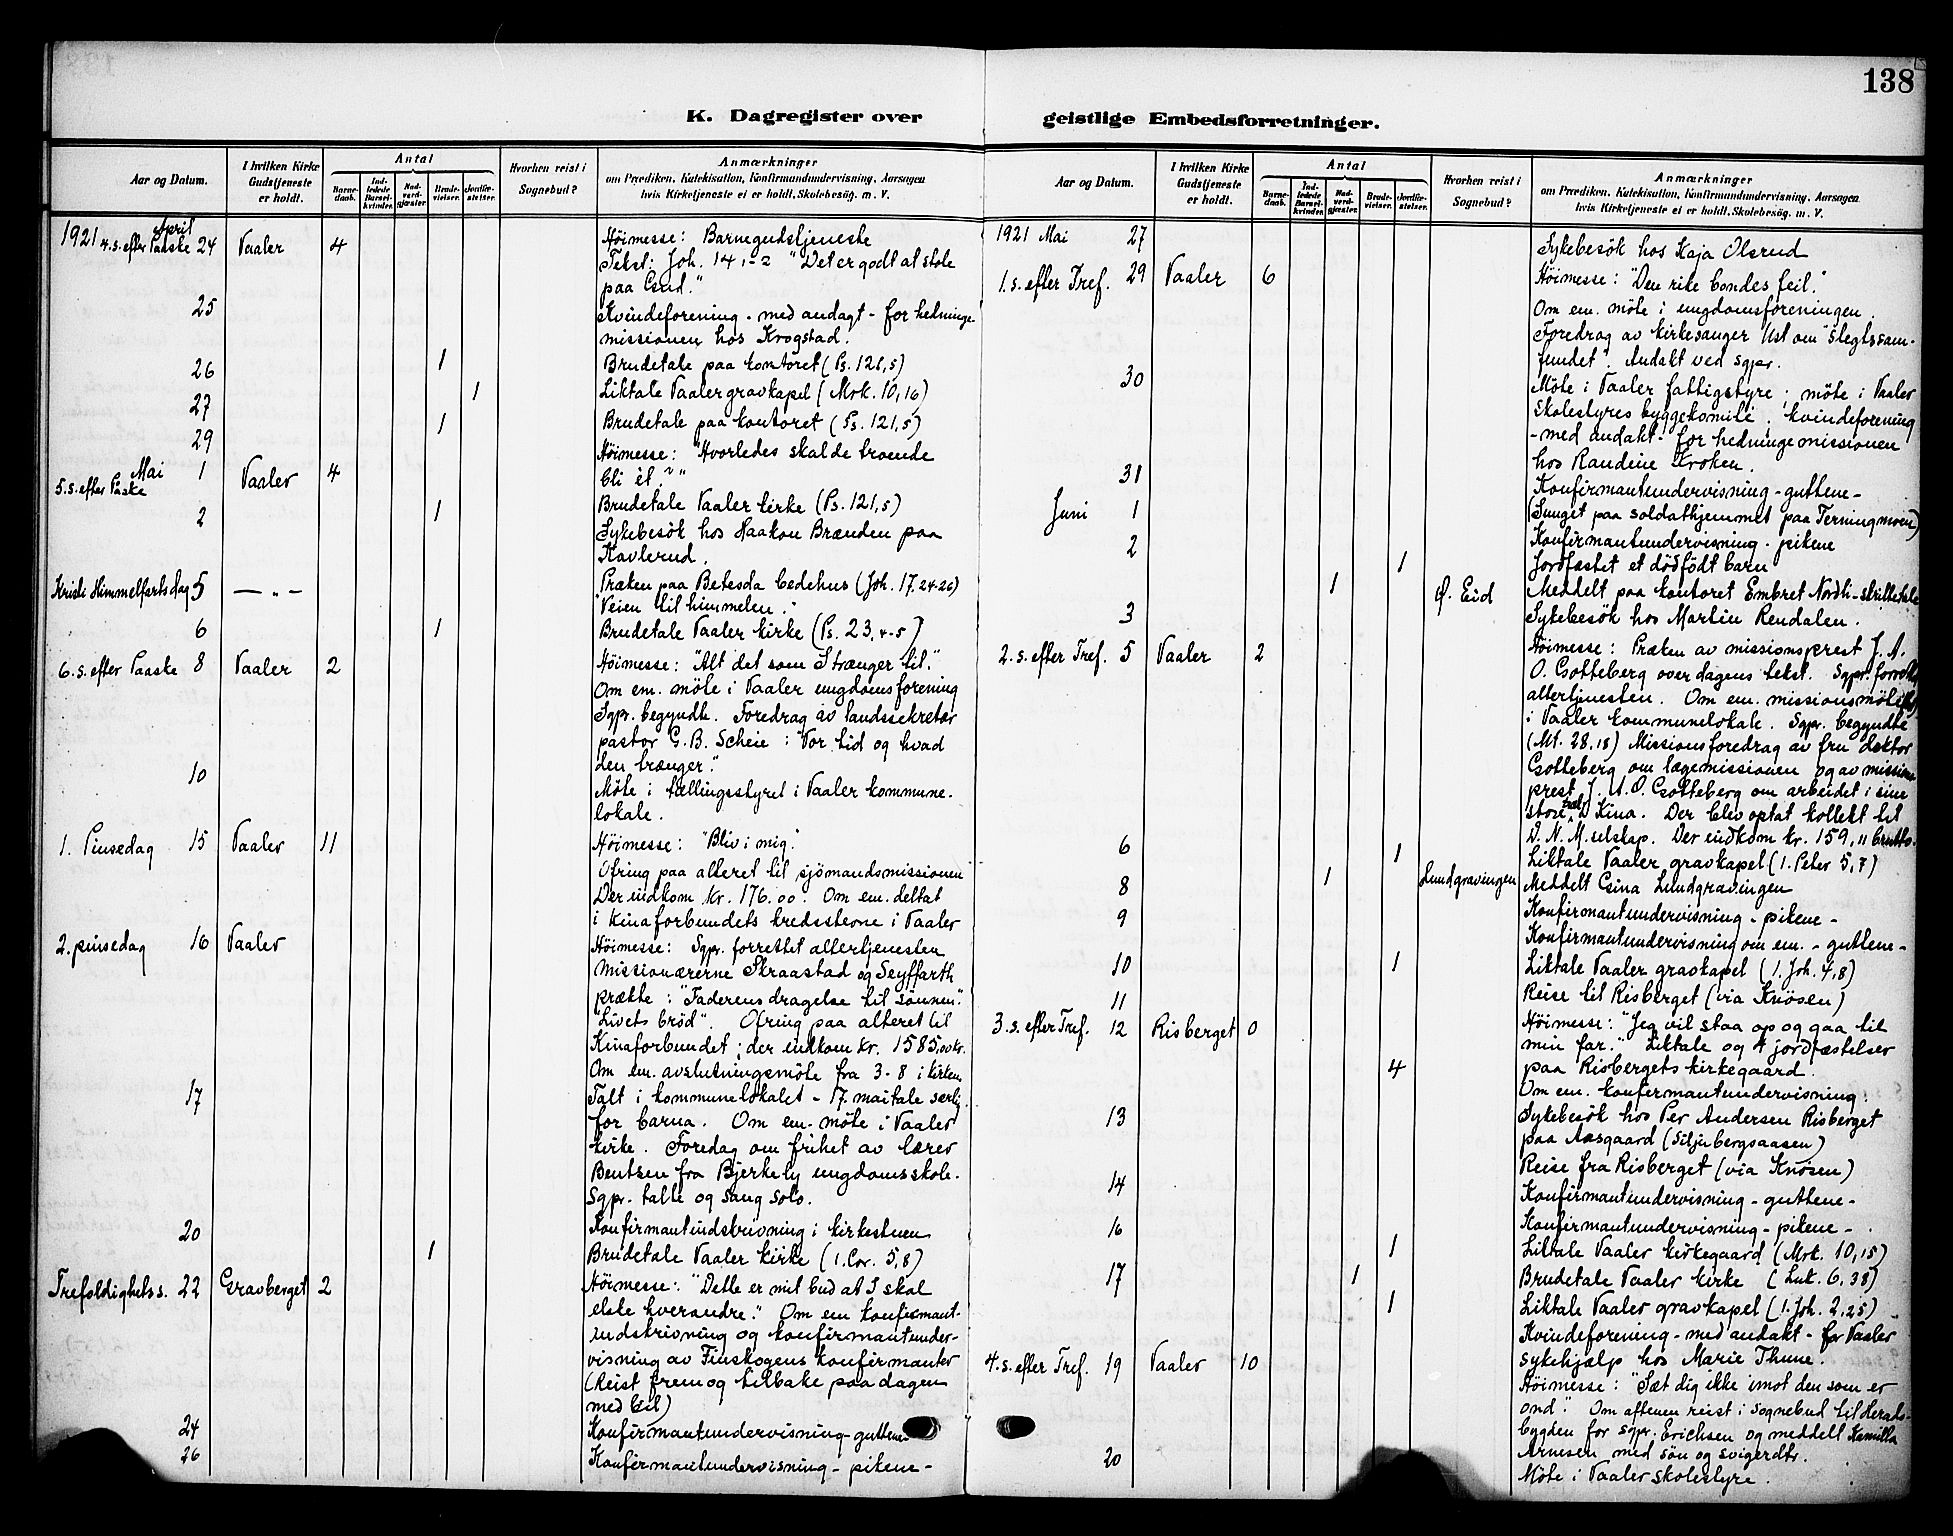 138
K. Dagregister over geistlige Embedsforretninger.
Aar og Datum.
I hvilken Kirke Gudstjeneste er holdt.
Antal
Barne-daab.
Ind-ledede Barsel-kvinder.
Nad-verd-gjæster.
Brude-vielser.
Jordfæ-stelser.
Hvorhen reist i Sognebud?
Anmærkninger
om Prædiken, Katekisation, Konfirmandundervisning, Aarsagen
hvis Kirketjeneste ei er holdt, Skolebesøg. m. V.
1921 April
4. s. efter Paaske 24 Vaaler 4 Höimesse: Barnegudstjeneste
Tekst: Joh. 14 1-2 "Det er godt at stole
paa Gud."
25 Kvindeforening - med andagt - for hedninge
missionen hos Krogstad.
26 1 Brudetale paa kontoret (Ps. 121,5)
27 1 Liktale Vaaler gravkapel (Mrk. 10,16)
29 1 Brudetale paa kontoret (Ps. 121,5)
Mai 1 5. s. efter Paaske Vaaler 4 Höimesse: "Hvorledes skal de troende
bli ét?"
2 1 Brudetale Vaaler kirke (Ps. 121,5)
Sykebesök hos Haakon Brænden paa
Kavlerud.
Kristi Himmelfartsdag 5 — „ — Præken paa Betesda bedehus (Joh. 17.24-26)
"Veien til himmelen."
6 1 Brudetale Vaaler kirke (Ps. 23,4-5)
6. s. efter Paaske 8 Vaaler 2 Höimesse: "Alt det som Trænger til."
Om em. möte i Vaaler ungdomsforening
Sgpr. begyndte. Foredrag av landssekretær
pastor G. B. Scheie: "Vor tid og hvad
den trænger."
10 Möte i tællingsstyret i Vaaler kommune-
lokale.
1. Pinsedag 15 Vaaler 11 Höimesse: "Bliv i mig."
Ofring paa alteret til sjömandsmissionen
Der indkom kr. 176.00. Om em. deltat
i Kinaforbundets kredsstevne i Vaaler
2. pinsedag 16 Vaaler Höimesse: Sgpr. forrettet altertjenesten
Missionærerne Skraastad og Seyffarth
prækte: "Faderens dragelse til sönnen".
"Livets bröd". Ofring paa alteret til
Kinaforbundet; der indkom kr. 1585,00 kr.
Om em. avslutningsmöte fra 3-8 i kirken
17 Talt i kommunelokalet - 17. maitale særlig
for barna. Om em. möte i Vaaler
kirke. Foredag om frihet av lærer
Bentsen fra Bjerkely ungdomsskole.
Sgpr. talte og sang solo.
20 Konfirmantindskrivning i kirkestuen
1 Brudetale Vaaler kirke (1. Cor. 5,8)
Trefoldighetss. 22 Gravberget 2 Höimesse: "Dette er mit bud at I skal
elske hverandre." Om em konfirmant-
indskrivning og konfirmantunder-
visning av Finskogens konfirmanter
(Reist frem og tilbake paa dagen
med bil)
24 Konfirmantundervisning - guttene
26 Konfirmantundervisning - pikene -
Aar og Datum.
I hvilken Kirke Gudstjeneste er holdt.
Antal
Barne-daab.
Ind-ledede Barsel-kvinder.
Nad-verd-gjæster.
Brude-vielser.
Jordfæ-stelser.
Hvorhen reist i Sognebud?
Anmærkninger
om Prædiken, Katekisation, Konfirmandundervisning, Aarsagen
hvis Kirketjeneste ei er holdt, Skolebesøg. m. V.
1921 Mai 27 Sykebesök hos Kaja Olsrud
1. s. efter Tref. 29 Vaaler 6 Höimesse: "Den rike bondes feil."
Om em. möte i ungdomsforeningen.
Foredrag av kirkesanger Ust om "Slegtssam-
fundet". Andakt ved sgpr.
30 Möte i Vaaler fattigstyre; möte i Vaaler
Skolestyres byggekomité. kvindeforening
- med andakt - for hedningemissionen
hos Randine Kroken.
31 Konfirmantundervisning - guttene -
Juni 1 (Sunget paa soldathjemmet paa Terningmoen)
2 Konfirmantundervisning - pikene
1 Jordfæstet et dödfödt barn
1 Ø. Eid Meddelt paa kontoret Embret Nordli - skriftetale
3 Sykebesök hos Martin Rendalen.
2. s. efter Tref. 5 Vaaler 2 Höimesse: Præken av missionsprest J. A.
O. Gotteberg over dagens tekst. Sgpr. forrettet
altertjenesten. Om em. missionsmöte
i Vaaler kommunelokale. Sgpr. begyndte
(Mt. 28,18) Missionsforedrag av fru doktor
Gotteberg om lægemissionen og av missions
prest J. A. O. Gotteberg om arbeidet i sine
store træk Kina. Der blev optat kollekt til
D. N. M. selskap. Der indkom kr. 159,11 brutto.
6 1 Liktale Vaaler gravkapel (1. Peter 5,7)
8 1 Lundgravingen Meddelt Gina Lundgravingen
9 Konfirmantundervisning - pikene -
Konfirmantundervisning om em. - guttene -
10 1 Liktale Vaaler gravkapel (1. Joh. 4,8)
11 Reise til Risberget (via Knösen)
3. s. efter Tref. 12 Risberget 0 Höimesse: "Jeg vil staa op og gaa til
min far." Liktale og 4 jordfæstelser
4 paa Risbergets kirkegaard.
Om em. konfirmantundervisning.
13 Sykebesök hos Per Andersen Risberget
paa Aasgaard (Siljubergsaasen)
Reise fra Risberget (via Knösen)
14 Konfirmantundervisning - guttene -
16 Konfirmantundervisning - pikene -
1 Liktale Vaaler kirkegaard (Mrk. 10,15)
17 1 Brudetale Vaaler kirke (Luk. 6,38)
1 Liktale Vaaler gravkapel (1. Joh. 2,25)
Kvindeforening - med andakt - for Vaaler
sykehjælp hos Marie Thune.
4. s. efter Tref. 19 Vaaler 10 Höimesse: "Sæt dig ikke imot den som er
ond." Om aftenen reist i sognebud til Herads-
bygden for sgpr. Erichsen og meddelt Kamilla
Arnesen med sön og svigerdtr.
20 Möte i Vaaler skolestyre.